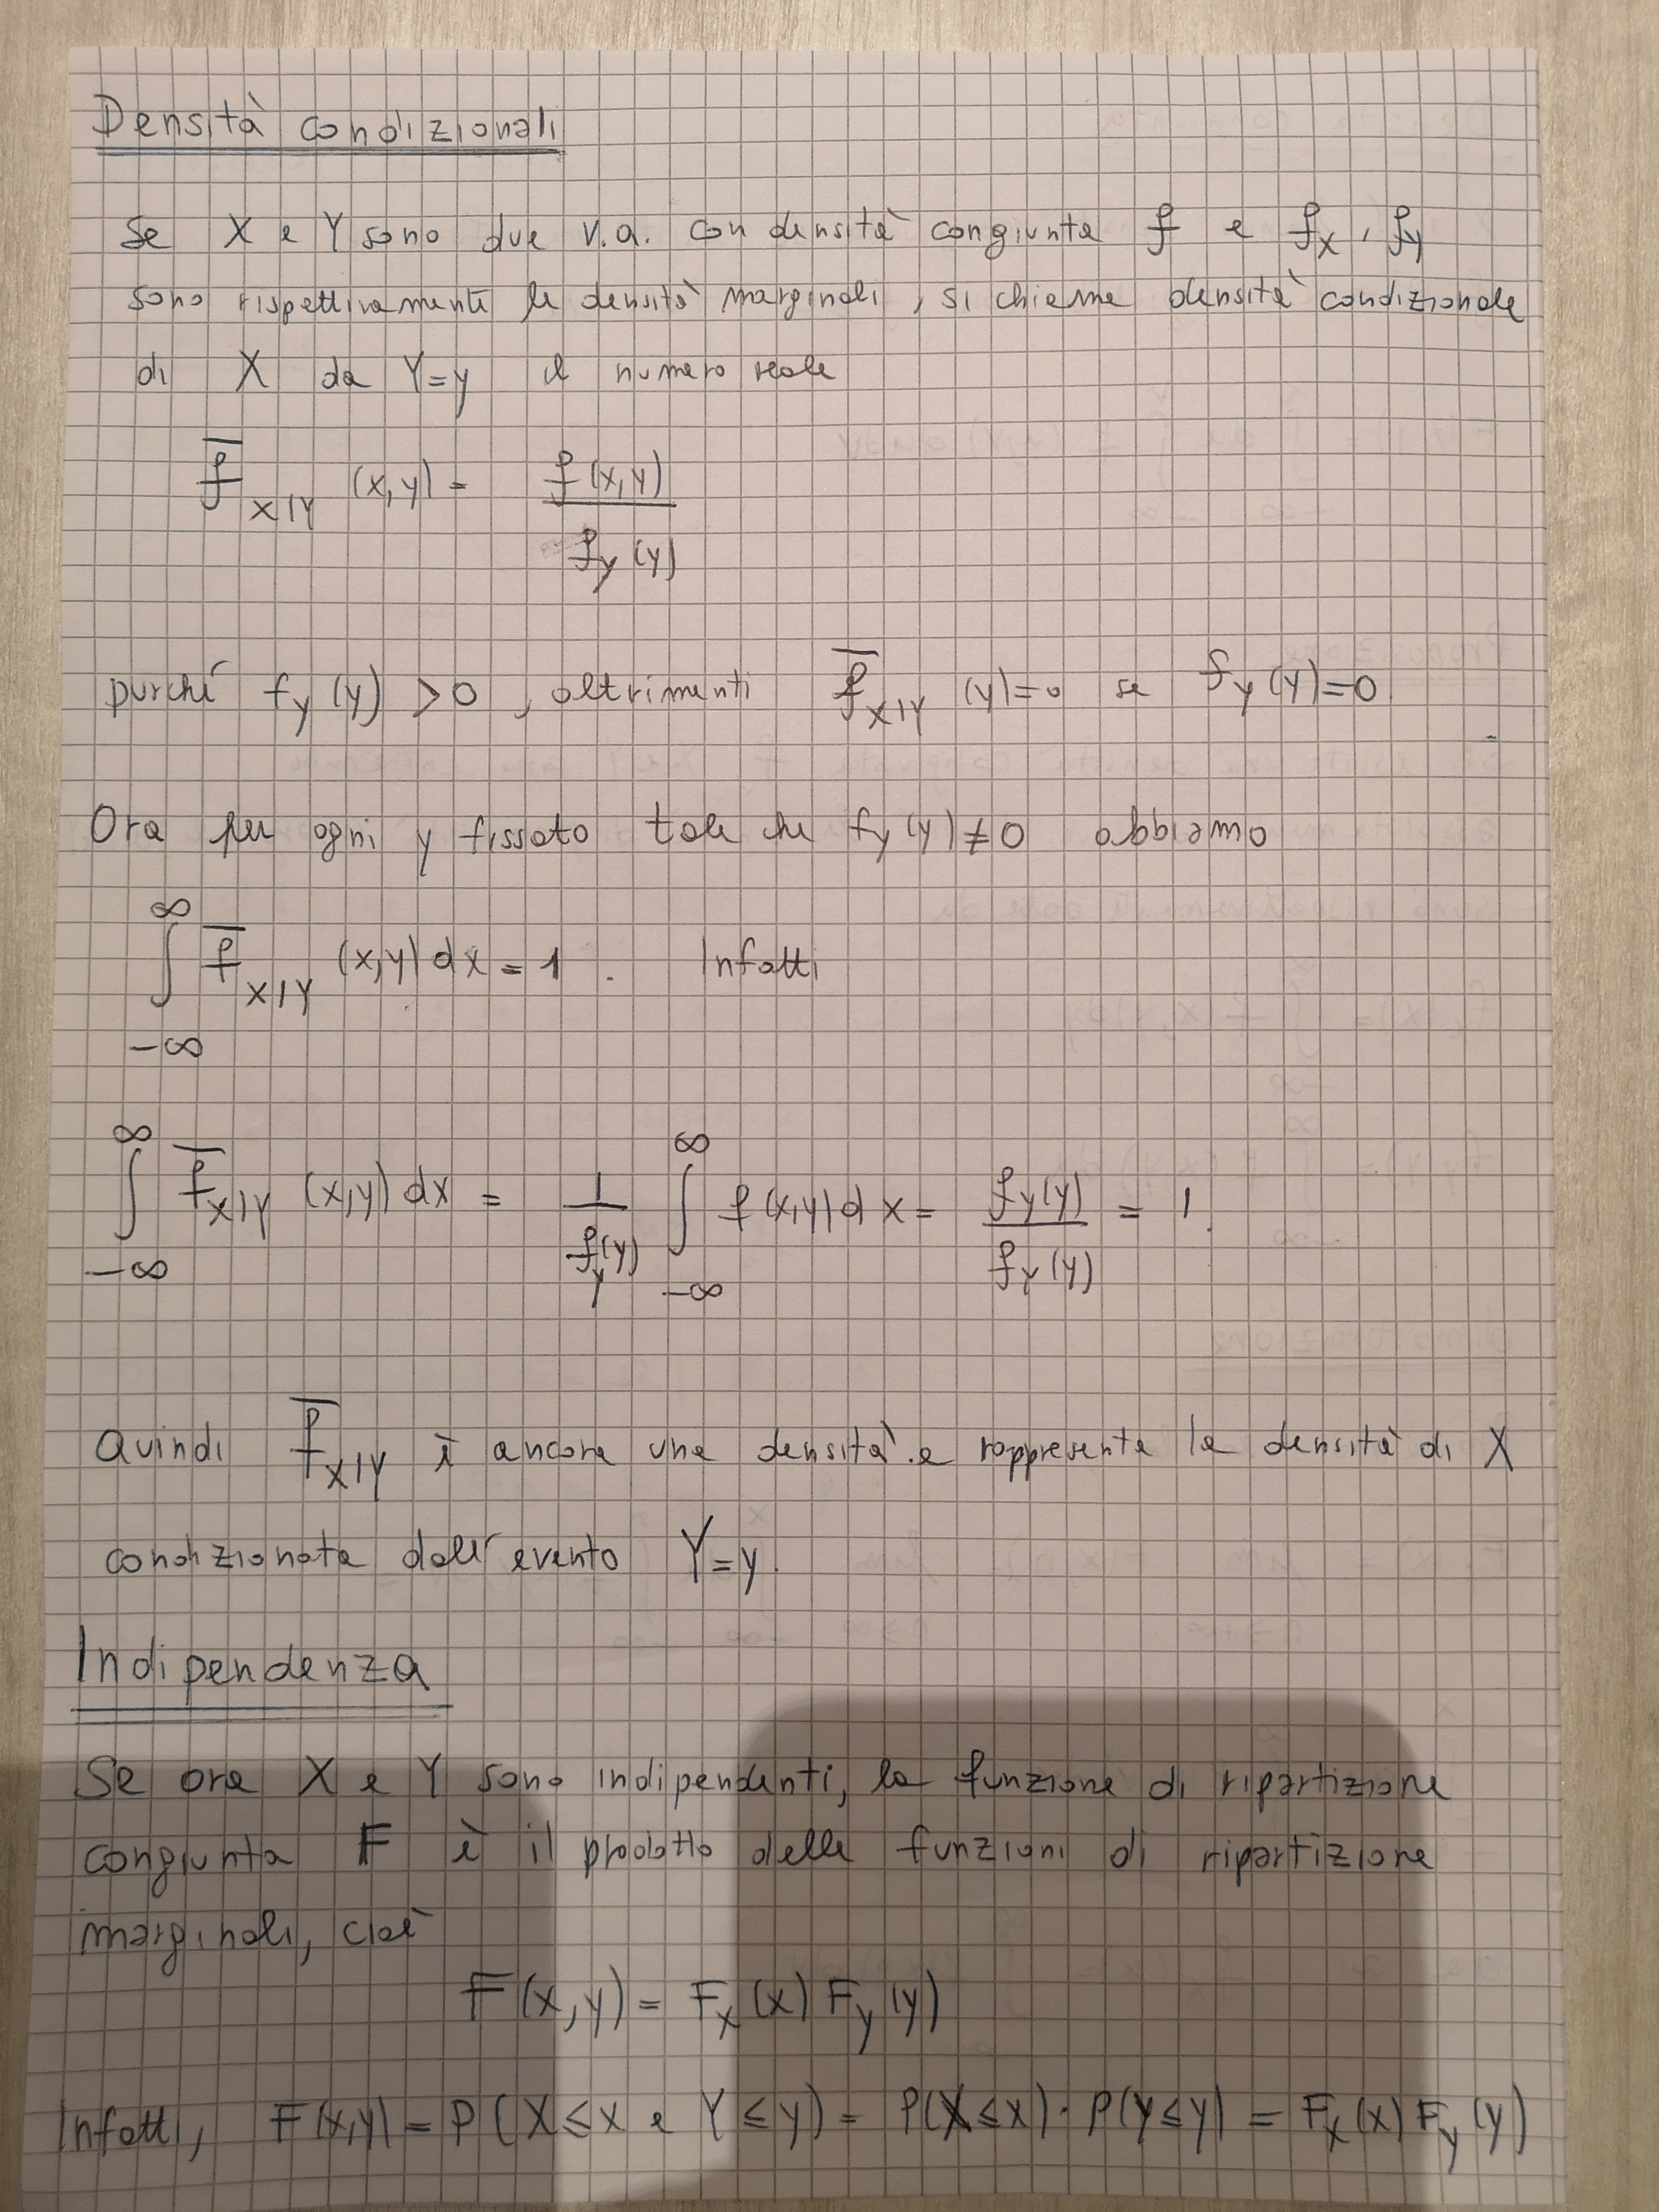 Densità condizionali
Se X e Y sono due v.a. con densità congiunta f e f_X, f_Y
sono rispettivamente le densità marginali, si chiama densità condizionale
di X da Y=y il numero reale
f̅_{X|Y} (x,y) = f(x,y) / f_Y(y)
purché f_Y(y) > 0, altrimenti f̅_{X|Y} (y)=0 se f_Y(y)=0
Ora per ogni y fissato tale che f_Y(y) ≠ 0 abbiamo
∫_{-∞}^{∞} f̅_{X|Y} (x,y) dx = 1. Infatti
∫_{-∞}^{∞} f̅_{X|Y} (x,y) dx = 1/f_Y(y) ∫_{-∞}^{∞} f(x,y) dx = f_Y(y)/f_Y(y) = 1.
Quindi f̅_{X|Y} è ancora una densità e rappresenta la densità di X
condizionata dall'evento Y=y.
Indipendenza
Se ora X e Y sono indipendenti, la funzione di ripartizione
congiunta F è il prodotto delle funzioni di ripartizione
marginali, cioè
F(x,y) = F_X(x) F_Y(y)
Infatti, F(x,y) = P(X≤x e Y≤y) = P(X≤x)·P(Y≤y) = F_X(x) F_Y(y)